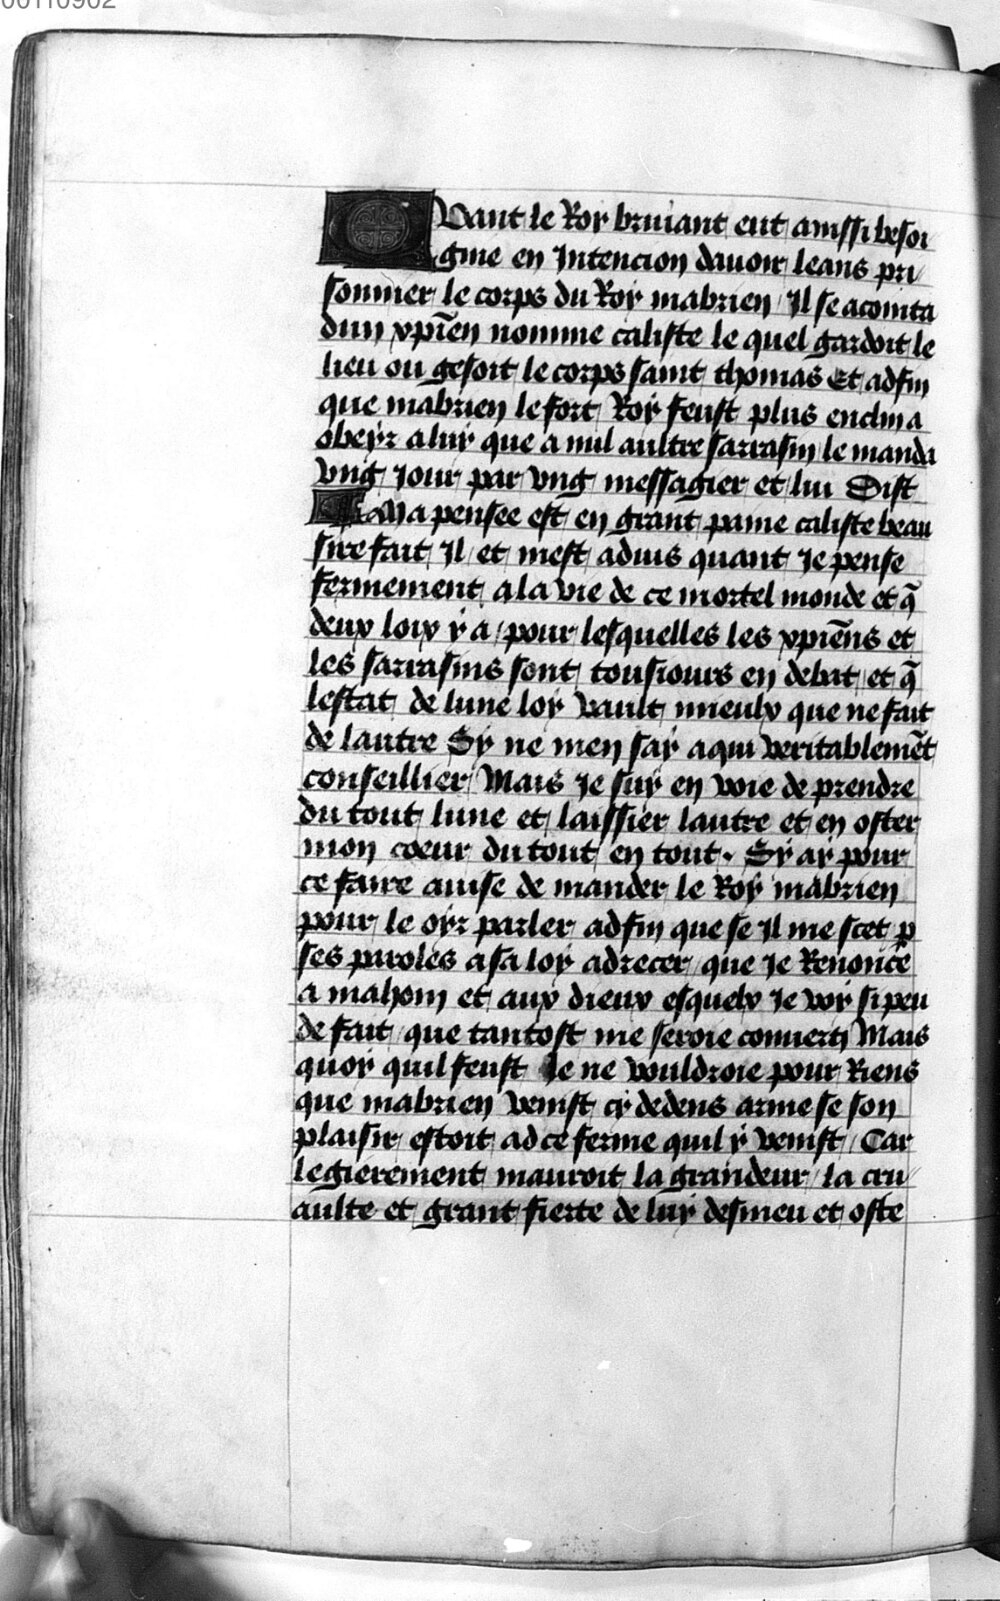 00110902
Quant le Roy bruiant eut ainssi besoi
gnie en Intencion dauoir leans pri
sonnier le corps du Roy mabrien Il se acointa
dun xpīen nomme caliste le quel gardoit le
lieu ou gesoit le corps saint thomas Et adfin
que mabrien le fort Roy feust plus enclin a
obeyr a luy que a nul aultre sarrasin le manda
vng Jour par vng messagier et lui Dist
Ma pensee est en grant paine caliste beau
sire fait Il et mest aduis quant Je pense
fermement a la vie de ce mortel monde et q̄
deux loix y a pour lesquelles les xpīens et
les sarrasins sont tousiours en debat et q̄
lestat de lune loy vault mieulx que ne fait
de lautre Sy ne men say a qui veritablemēt
conseillier Mais Je suy en voie de prendre
du tout lune et laissier lautre et en oster
mon coeur du tout en tout. Sy ay pour
ce faire auise de mander le Roy mabrien
pour le oyr parler adfin que se Il me scet ꝑ
ses paroles a sa loy adrecer que Je Renonce
a mahom et aux dieux esquelx Je voy si peu
de fait que tantost me seroie conuerti Mais
quoy quil feust Je ne vouldroie pour Riens
que mabrien venist cy dedens arme se son
plaisir estoit ad ce ferme quil y venist Car
legierement mauroit la grandeur la cru
aulte et grant fierte de luy desmeu et oste